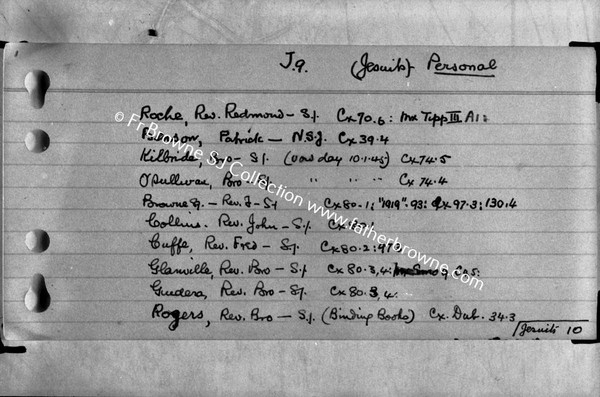 J.9. (Jesuits) Personal
Roche, Rev. Redmond - S.J. Cx 70.6: Mx Tipp III A1:
Patrick - N.S.J. Cx 39.4
Kilbride, Bro - S.J. (Vow day 10.1.45) Cx 74.5
O'Sullivan, Bro - S.J. " " " Cx 74.4
Browne SJ. - Rev. F - SJ Cx 80.1: "1919". 93: Cx 97.3: 130.4
Collins. Rev. John - S.J. Cx
Cuffe, Rev. Fred - S.J. Cx 80.2:
Glanville, Rev. Bro - S.J Cx 80.3,4:
Gudera, Rev. Bro - S.J. Cx 80.3,4.
Rogers, Rev. Bro - S.J. (Binding Books) Cx. Dub. 34.3
Jesuits 10
© Fr Browne SJ Collection www.fatherbrowne.com